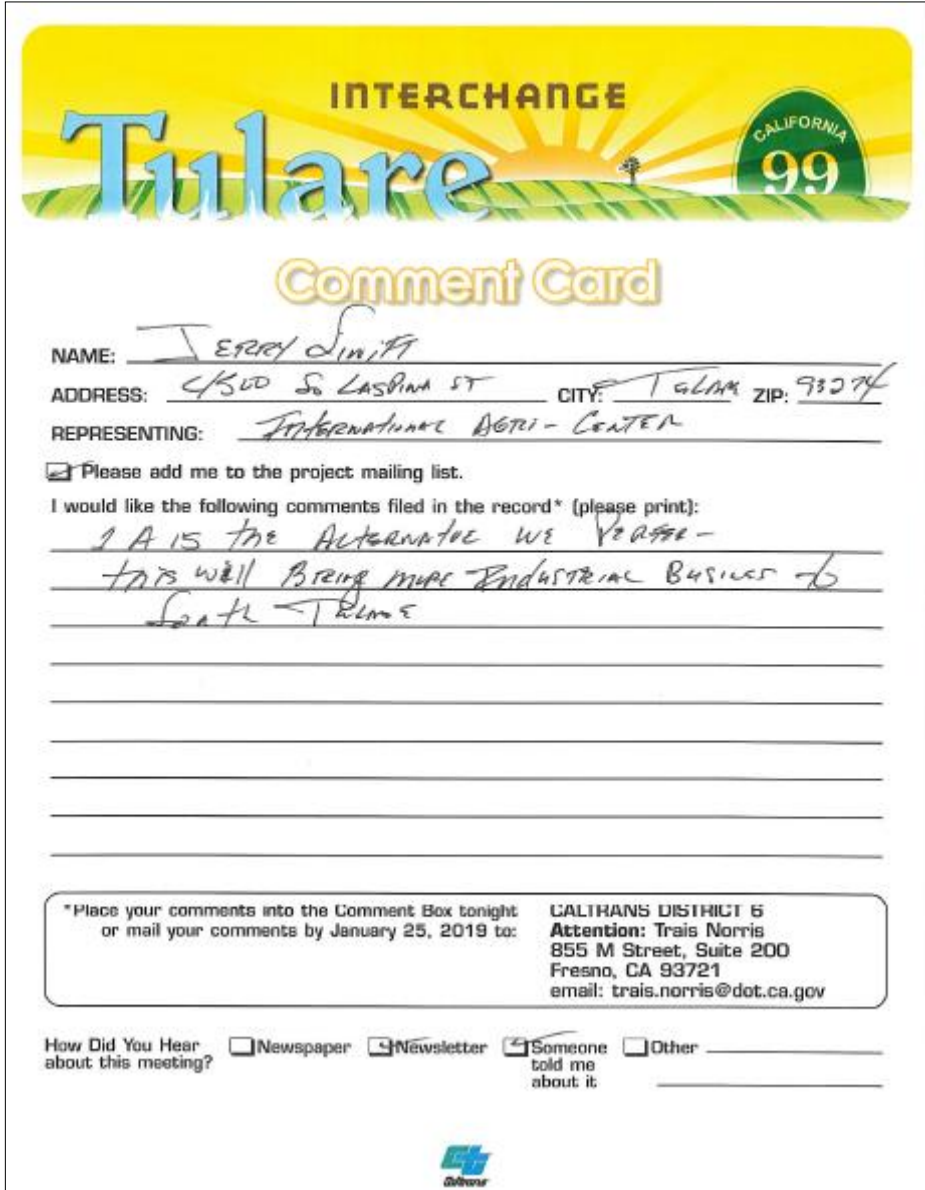 INTERCHANGE
Tulare
CALIFORNIA
99
Comment Card
NAME: JERRY
ADDRESS: So LASPINA ST CITY: ZIP: 93274
REPRESENTING: INTERNATIONAL AGRI-CENTER
Please add me to the project mailing list.
I would like the following comments filed in the record* (please print):
1 A IS the ALTERNATIVE WE PREFER -
this will BRING MORE INDUSTRIAL BUSINESS to
South TULARE
*Place your comments into the Comment Box tonight
or mail your comments by January 25, 2019 to:
CALTRANS DISTRICT 6
Attention: Trais Norris
855 M Street, Suite 200
Fresno, CA 93721
email: trais.norris@dot.ca.gov
How Did You Hear
about this meeting?
Newspaper
Newsletter
Someone
told me
about it
Other
Caltrans